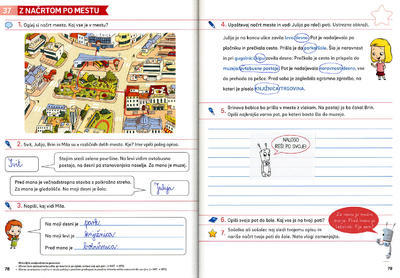 37 Z NAČRTOM PO MESTU
1. Oglej si načrt mesta. Kaj vse je v mestu?
2. Svit, Julija, Brin in Mila so v različnih delih mesta. Kje? Ime vpiši poleg opisa.
Svit
Stojim sredi zelene površine. Na levi vidim avtobusno
postajo, na desni pa stanovanjska naselja. Za mano je muzej.
Pred mano je večnadstropna stavba s polkrožno streho.
Za mano je gledališče. Na moji desni je šola.
Julija
3. Napiši, kaj vidi Mila.
Na moji desni je park.
Na moji levi je knjižnica.
Pred mano je bolnišnica.
78
4. Upoštevaj načrt mesta in vodi Julijo po rdeči poti. Ustrezno obkroži.
Julija je na koncu ulice zavila levo/desno. Pot je nadaljevala po
pločniku in prečkala cesto. Prišla je do parka/šole. Šla je naravnost
in pri
dospela desno. Prečkala je cesto in prispela do
muzeja/avtobusne postaje. Pot je nadaljevala naravnost/desno, vse
do prehoda za pešce. Pred sabo je zagledala ogromno zgradbo, na
kateri je pisalo KNJIŽNICA/TRGOVINA.
5. Brinova babica bo prišla v mesto z vlakom. Na postaji jo bo čakal Brin.
Opiši najkrajšo varno pot, po kateri bosta šla do muzeja.
NALOGO
REŠI PO SVOJE!
6. Opiši svojo pot do šole. Kaj vse je na tvoji poti?
7. Sošolka ali sošolec naj sledi tvojemu opisu in
nariše načrt tvoje poti do šole. Nato vlogi zamenjajta.
79